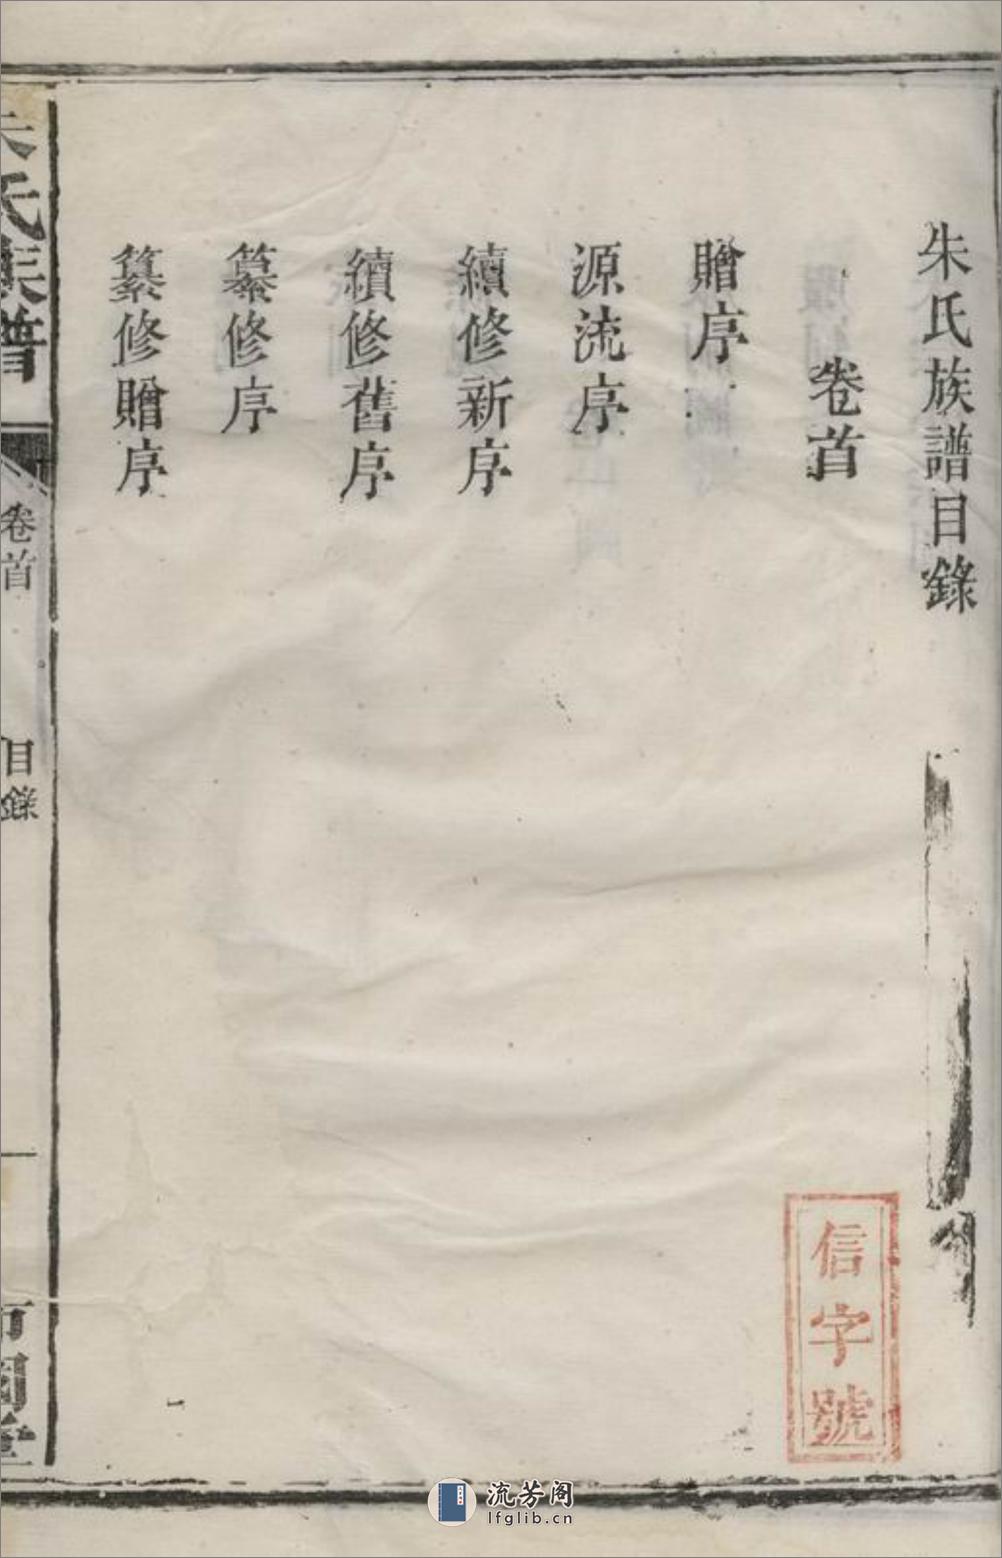 朱氏族譜目錄
卷首
贈序
源流序
續修新序
續修舊序
纂修序
纂修贈序
朱氏族譜
卷首
目錄
一
信字號
流芳阁
lfglib.cn